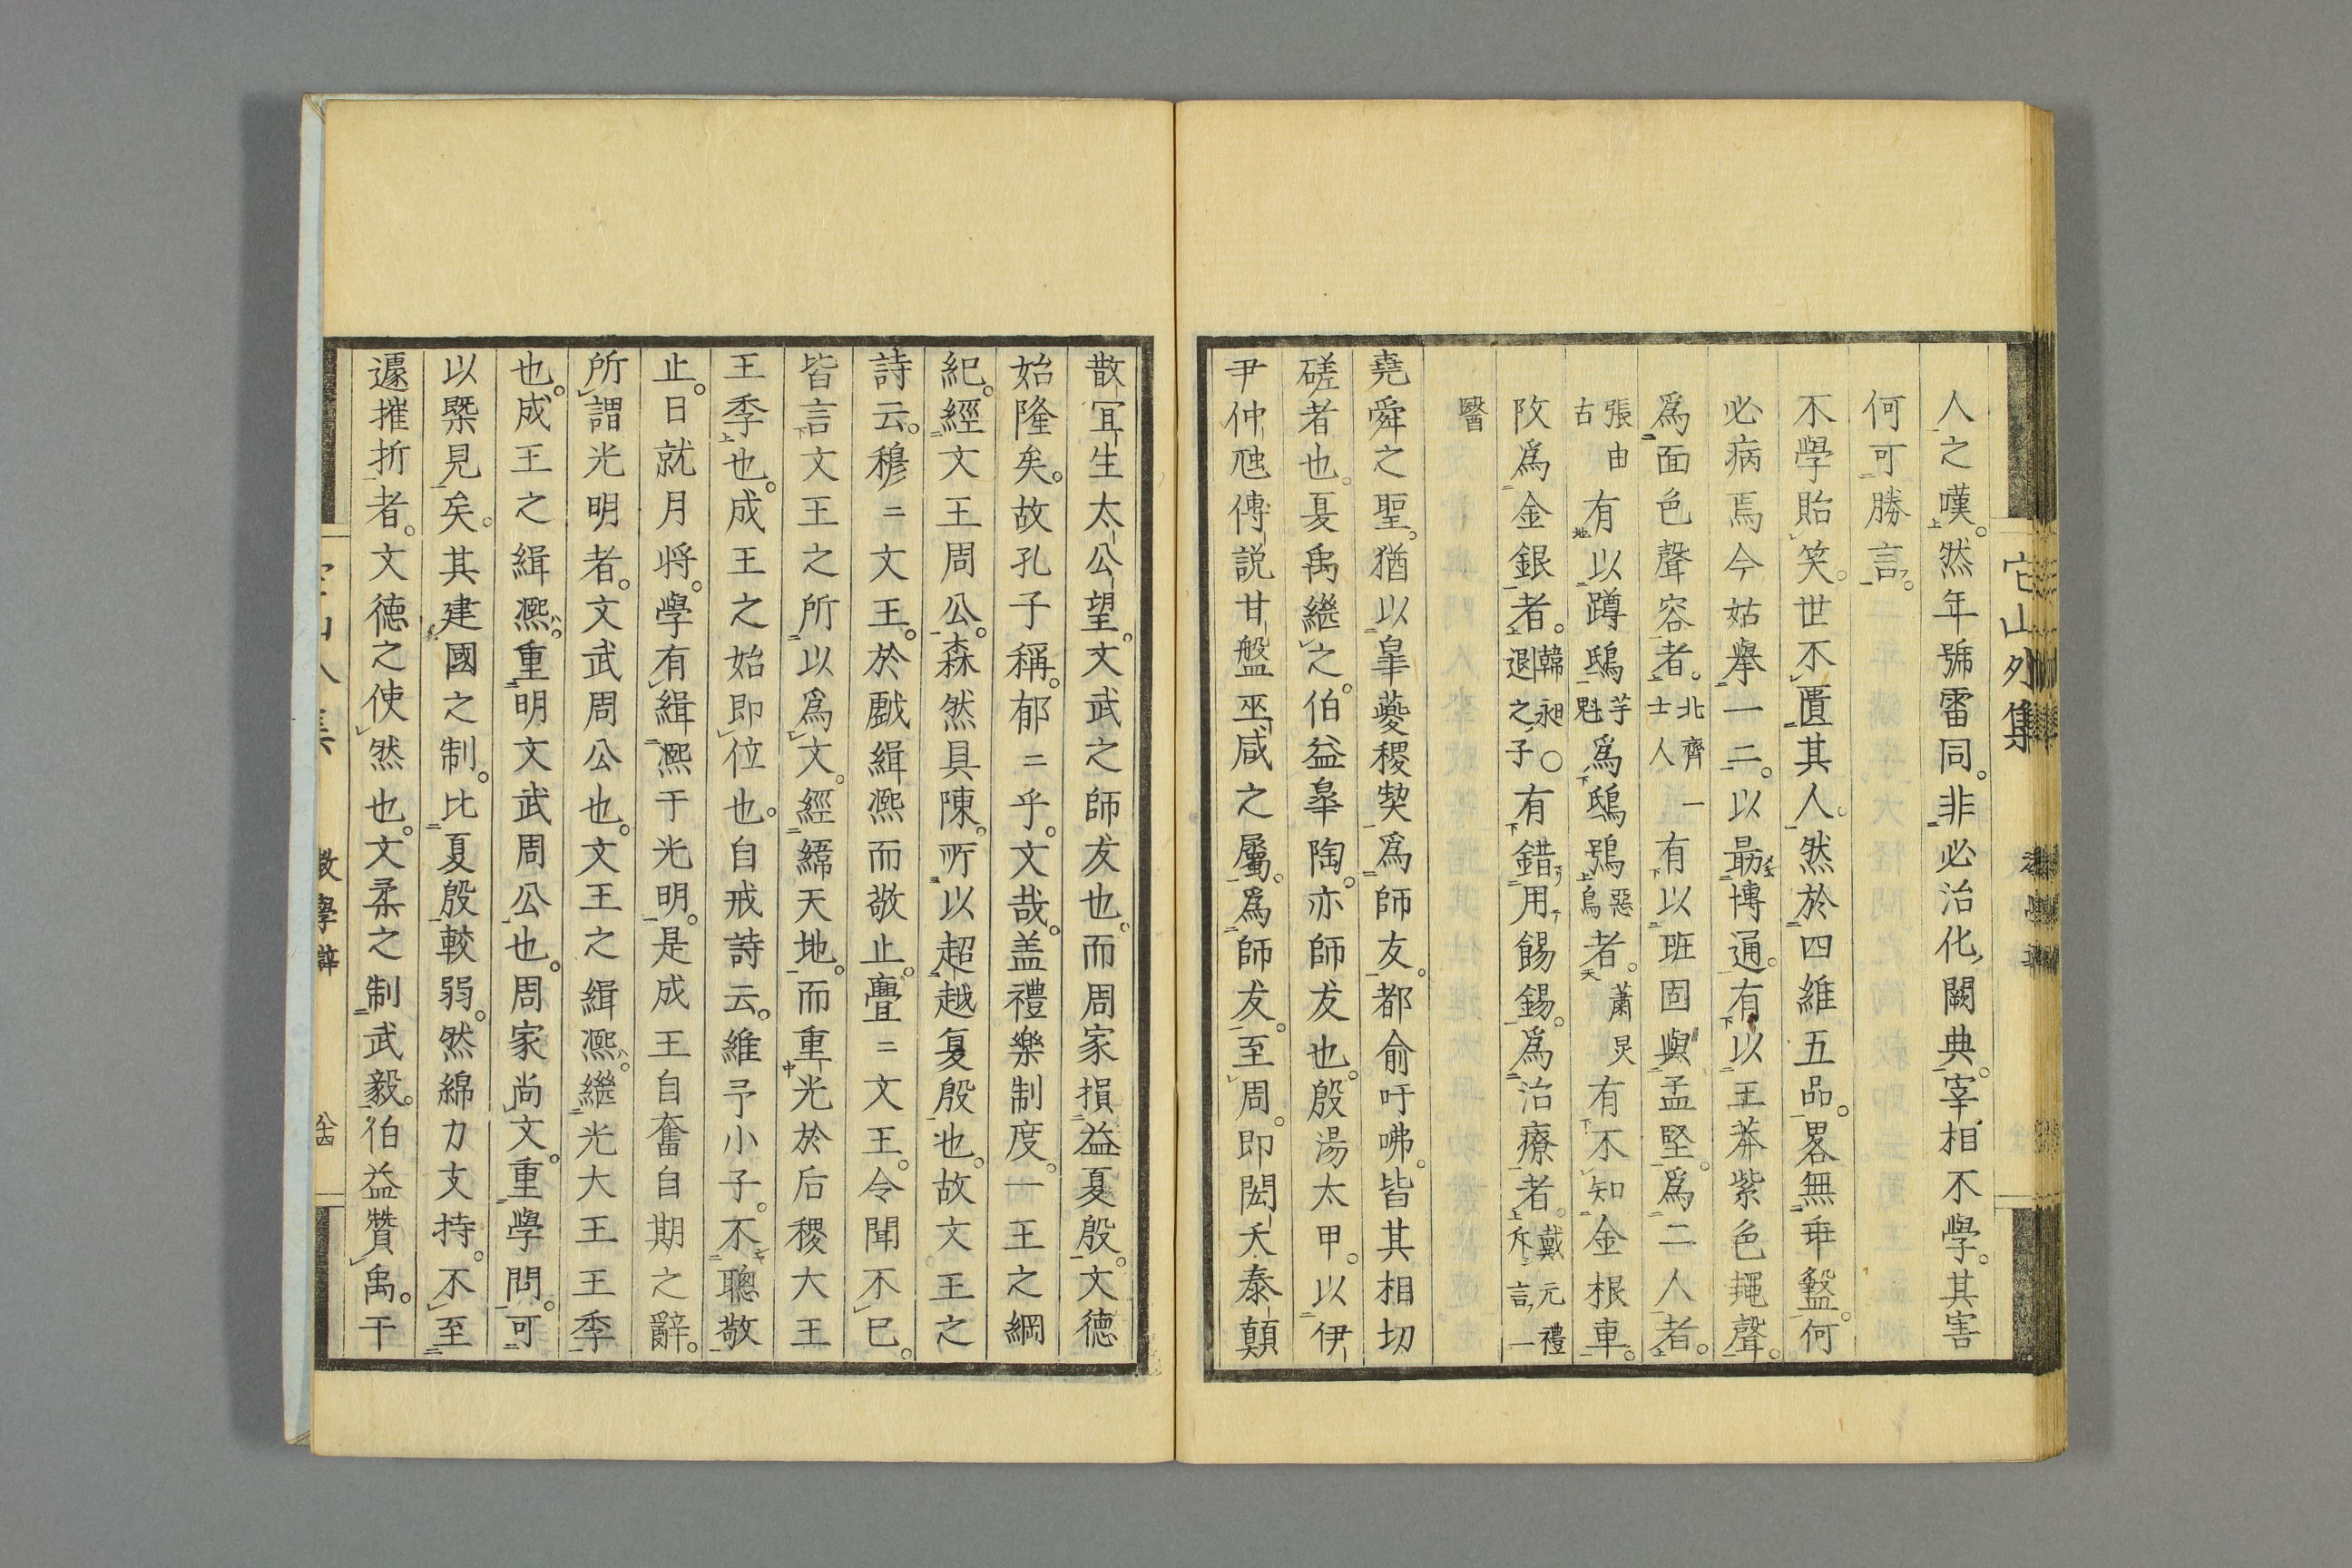 人之嘆。然年號雷同。非必治化闕典。宰相不學。其害
何可勝言。
不學貽笑。世不匱其人。然於四維五品。畧無乖盭。何
必病焉今姑擧一二。以最博通。有以王莽紫色䵷聲。
爲面色聲容者。北齊士人一有以班固與孟堅。爲二人者。
張由古有以蹲鴟芋魁爲鴟鴞惡鳥者。蕭炅有不知金根車。
改爲金銀者。韓昶退之子〇有錯用餳錫。爲治療者。戴元禮斥言一
醫
堯舜之聖。猶以皐夔稷契爲師友。都俞吁咈。皆其相切
磋者也。夏禹継之。伯益皐陶。亦師友也。殷湯太甲。以伊
尹仲虺傅説甘盤巫咸之屬。爲師友。至周。即閎夭泰顛
散宜生太公望。文武之師友也。而周家損益夏殷。文徳
始隆矣。故孔子稱。郁二乎。文哉。盖禮樂制度。一王之綱
紀。經文王周公。森然具陳。所以超越夏殷也。故文王之
詩云。穆二文王。於戲緝熈而敬止。亹二文王。令聞不已。
皆言文王之所以爲文。經緯天地。而重光於后稷大王
王季也。成王之始即位也。自戒詩云。維予小子。不聰敬
止。日就月将。學有緝熈于光明。是成王自奮自期之辭。
所謂光明者。文武周公也。文王之緝熈。継光大王王季
也。成王之緝熈。重明文武周公也。周家尚文。重學問。可
以槩見矣。其建國之制。比夏殷較弱。然綿力支持。不至
遽摧折者。文徳之使然也。文柔之制武毅。伯益贊禹。干
它山外集
教學辯